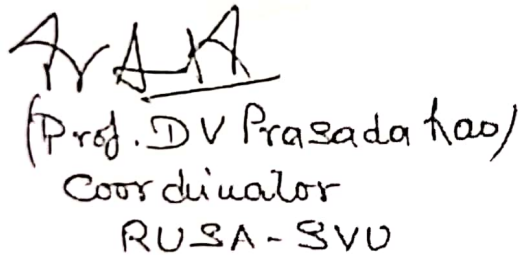 (Prof. DV Prasada Rao)
Coordinator
RUSA-SVU